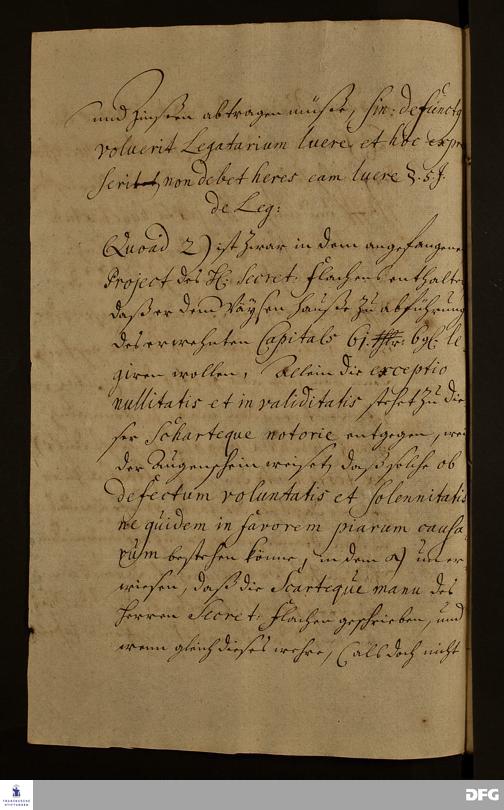 und Zinßen abtragen müße, sin: defunctq
voluerit Legatarium luere et hoc expre
serit, non debet heres eam luere §. 5. J.
de Leg:
Quoad 2) ist zwar in dem angefangene
Project des H: Secret: Flachens enthalte
daß er dem Wäysen Hauße zu abführung
des erwehnten Capitals 61. thlr: 6gl. le
giren wollen, Allein die exceptio
nullitatis et invaliditatis stehet zu die
ser Scharteque notorie entgegen, wei
der Augenschein weiset, daß solche ob
defectum voluntatis et solennitatis
ne quidem in favorem piarum causa
rum bestehen könne, in dem a) uner
wiesen, daß die Scarteque manu des
Herren Secret: Flachen geschrieben, und
wenn gleich dieses wehre, (als doch nicht
FRANCKESCHE
STIFTUNGEN
DFG